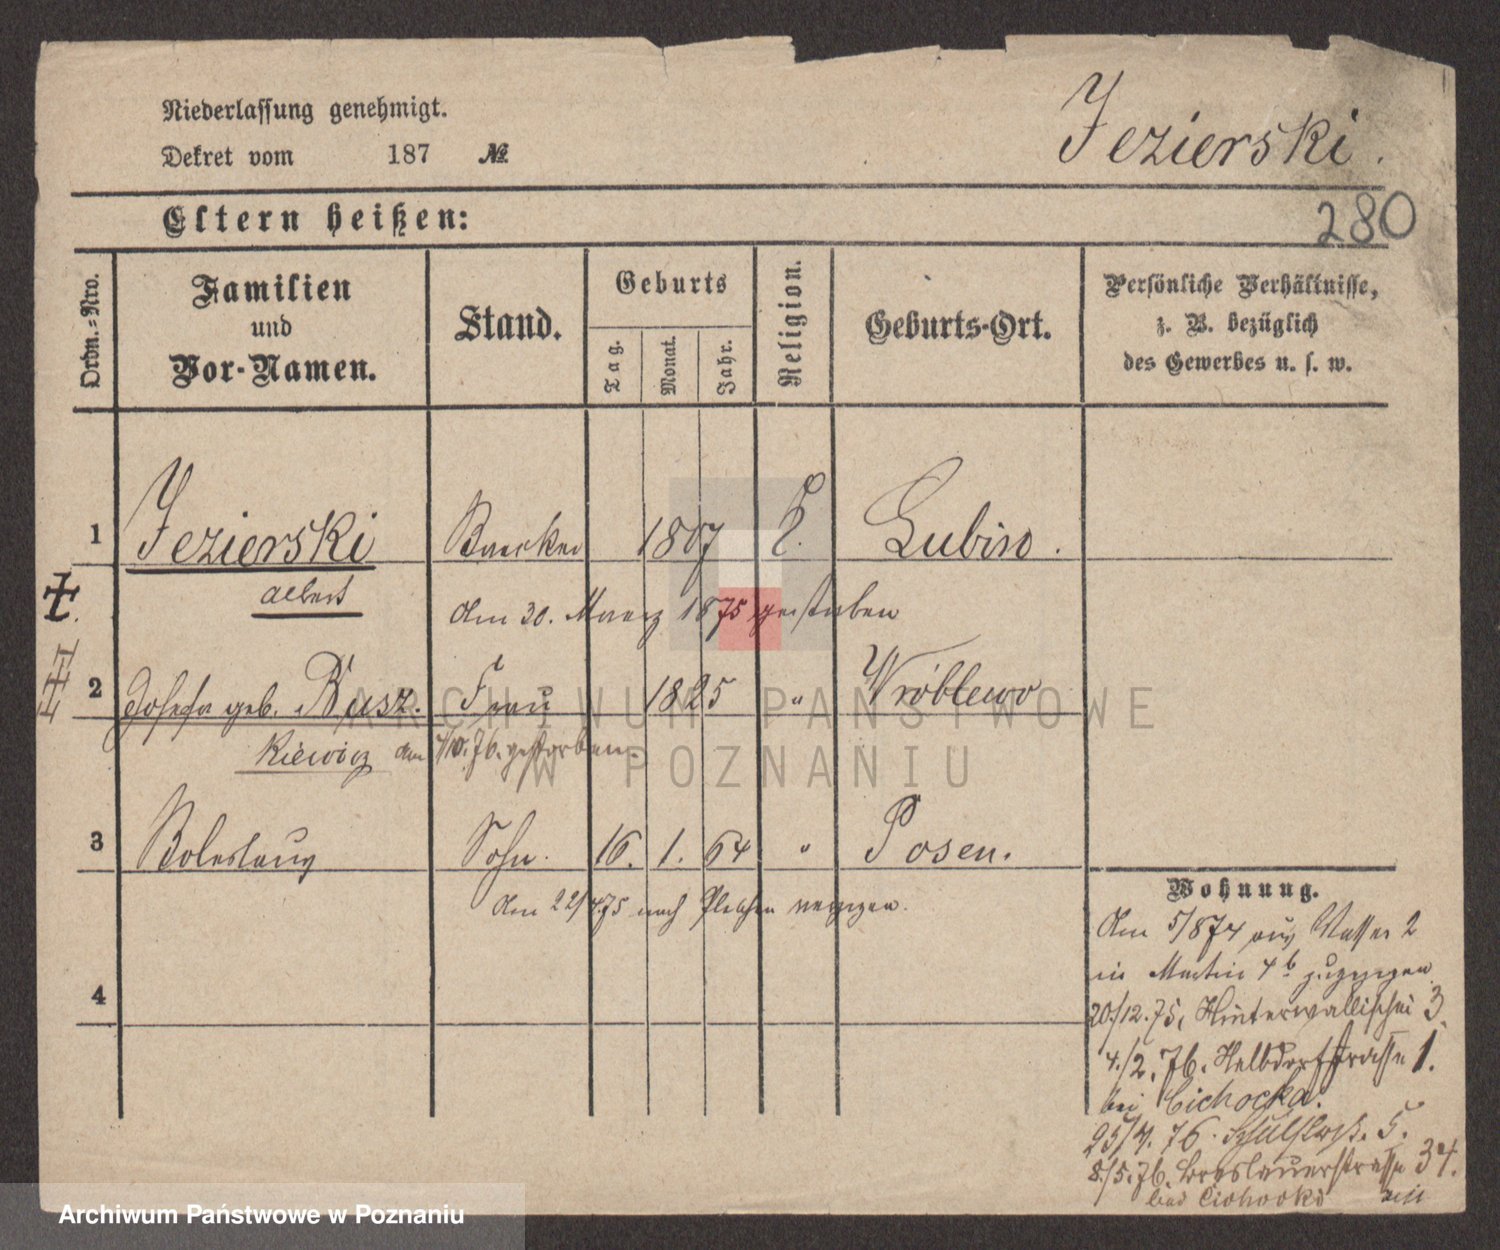 Niederlassung genehmigt.
Dekret vom 187 №
Jezierski.
280
Eltern heißen:
Ordn.=Nro.
Familien
und
Vor-Namen.
Stand.
Geburts
Tag.
Monat.
Jahr.
Religion.
Geburts-Ort.
Persönliche Verhältnisse,
z. B. bezüglich
des Gewerbes u. s. w.
1 Jezierski 1807 Lubin.
Albert
den 30. Maerz 1875 gestorben
2 Josefa geb. Rusz- Frau 1825 " Wróblewo
kiewicz den 4/10. 76. gestorben.
3 Boleslaus Sohn. 16. 1. 64 " Posen.
den 22/4 75 nach Pleschen verzogen.
4
Wohnung.
Am 5/874 aus Wasser 2
in Martin 4b zugezogen
20/12. 75, Hinterwallischei 3.
4./2. 76. Halbdorfstrasse 1.
bei Cichocka.
25/4. 76. 5.
8./5. 76. Breslauerstrasse 34.
bei Cichocki
ARCHIWUM PAŃSTWOWE
W POZNANIU
Archiwum Państwowe w Poznaniu